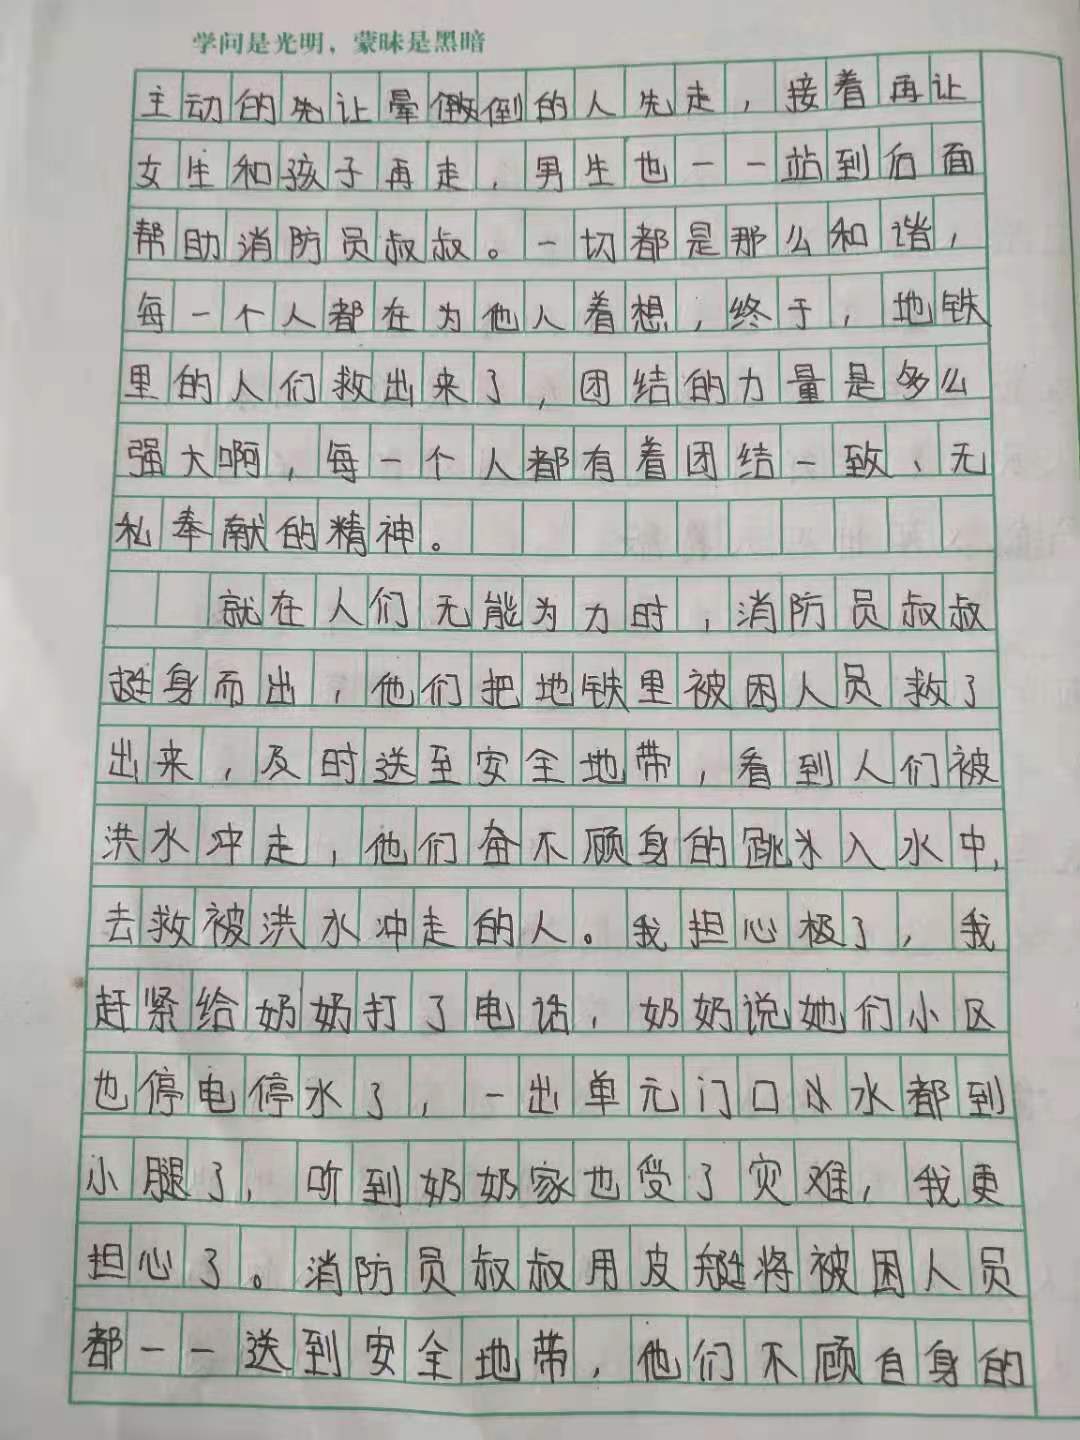 学问是光明，蒙昧是黑暗
主动的先让晕倒的人先走，接着再让
女生和孩子再走，男生也一一站到后面
帮助消防员叔叔。一切都是那么和谐，
每一个人都在为他人着想，终于，地铁
里的人们救出来了，团结的力量是多么
强大啊，每一个人都有着团结一致、无
私奉献的精神。
就在人们无能为力时，消防员叔叔
挺身而出，他们把地铁里被困人员救了
出来，及时送至安全地带，看到人们被
洪水冲走，他们奋不顾身的跳入水中，
去救被洪水冲走的人。我担心极了，我
赶紧给奶奶打了电话，奶奶说她们小区
也停电停水了，一出单元门口水都到
小腿了，听到奶奶家也受了灾难，我更
担心了。消防员叔叔用皮艇将被困人员
都一一送到安全地带，他们不顾自身的